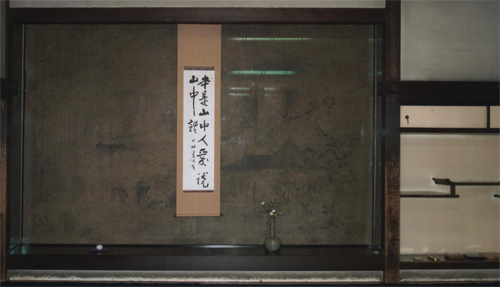 本是山中人愛説
山中話